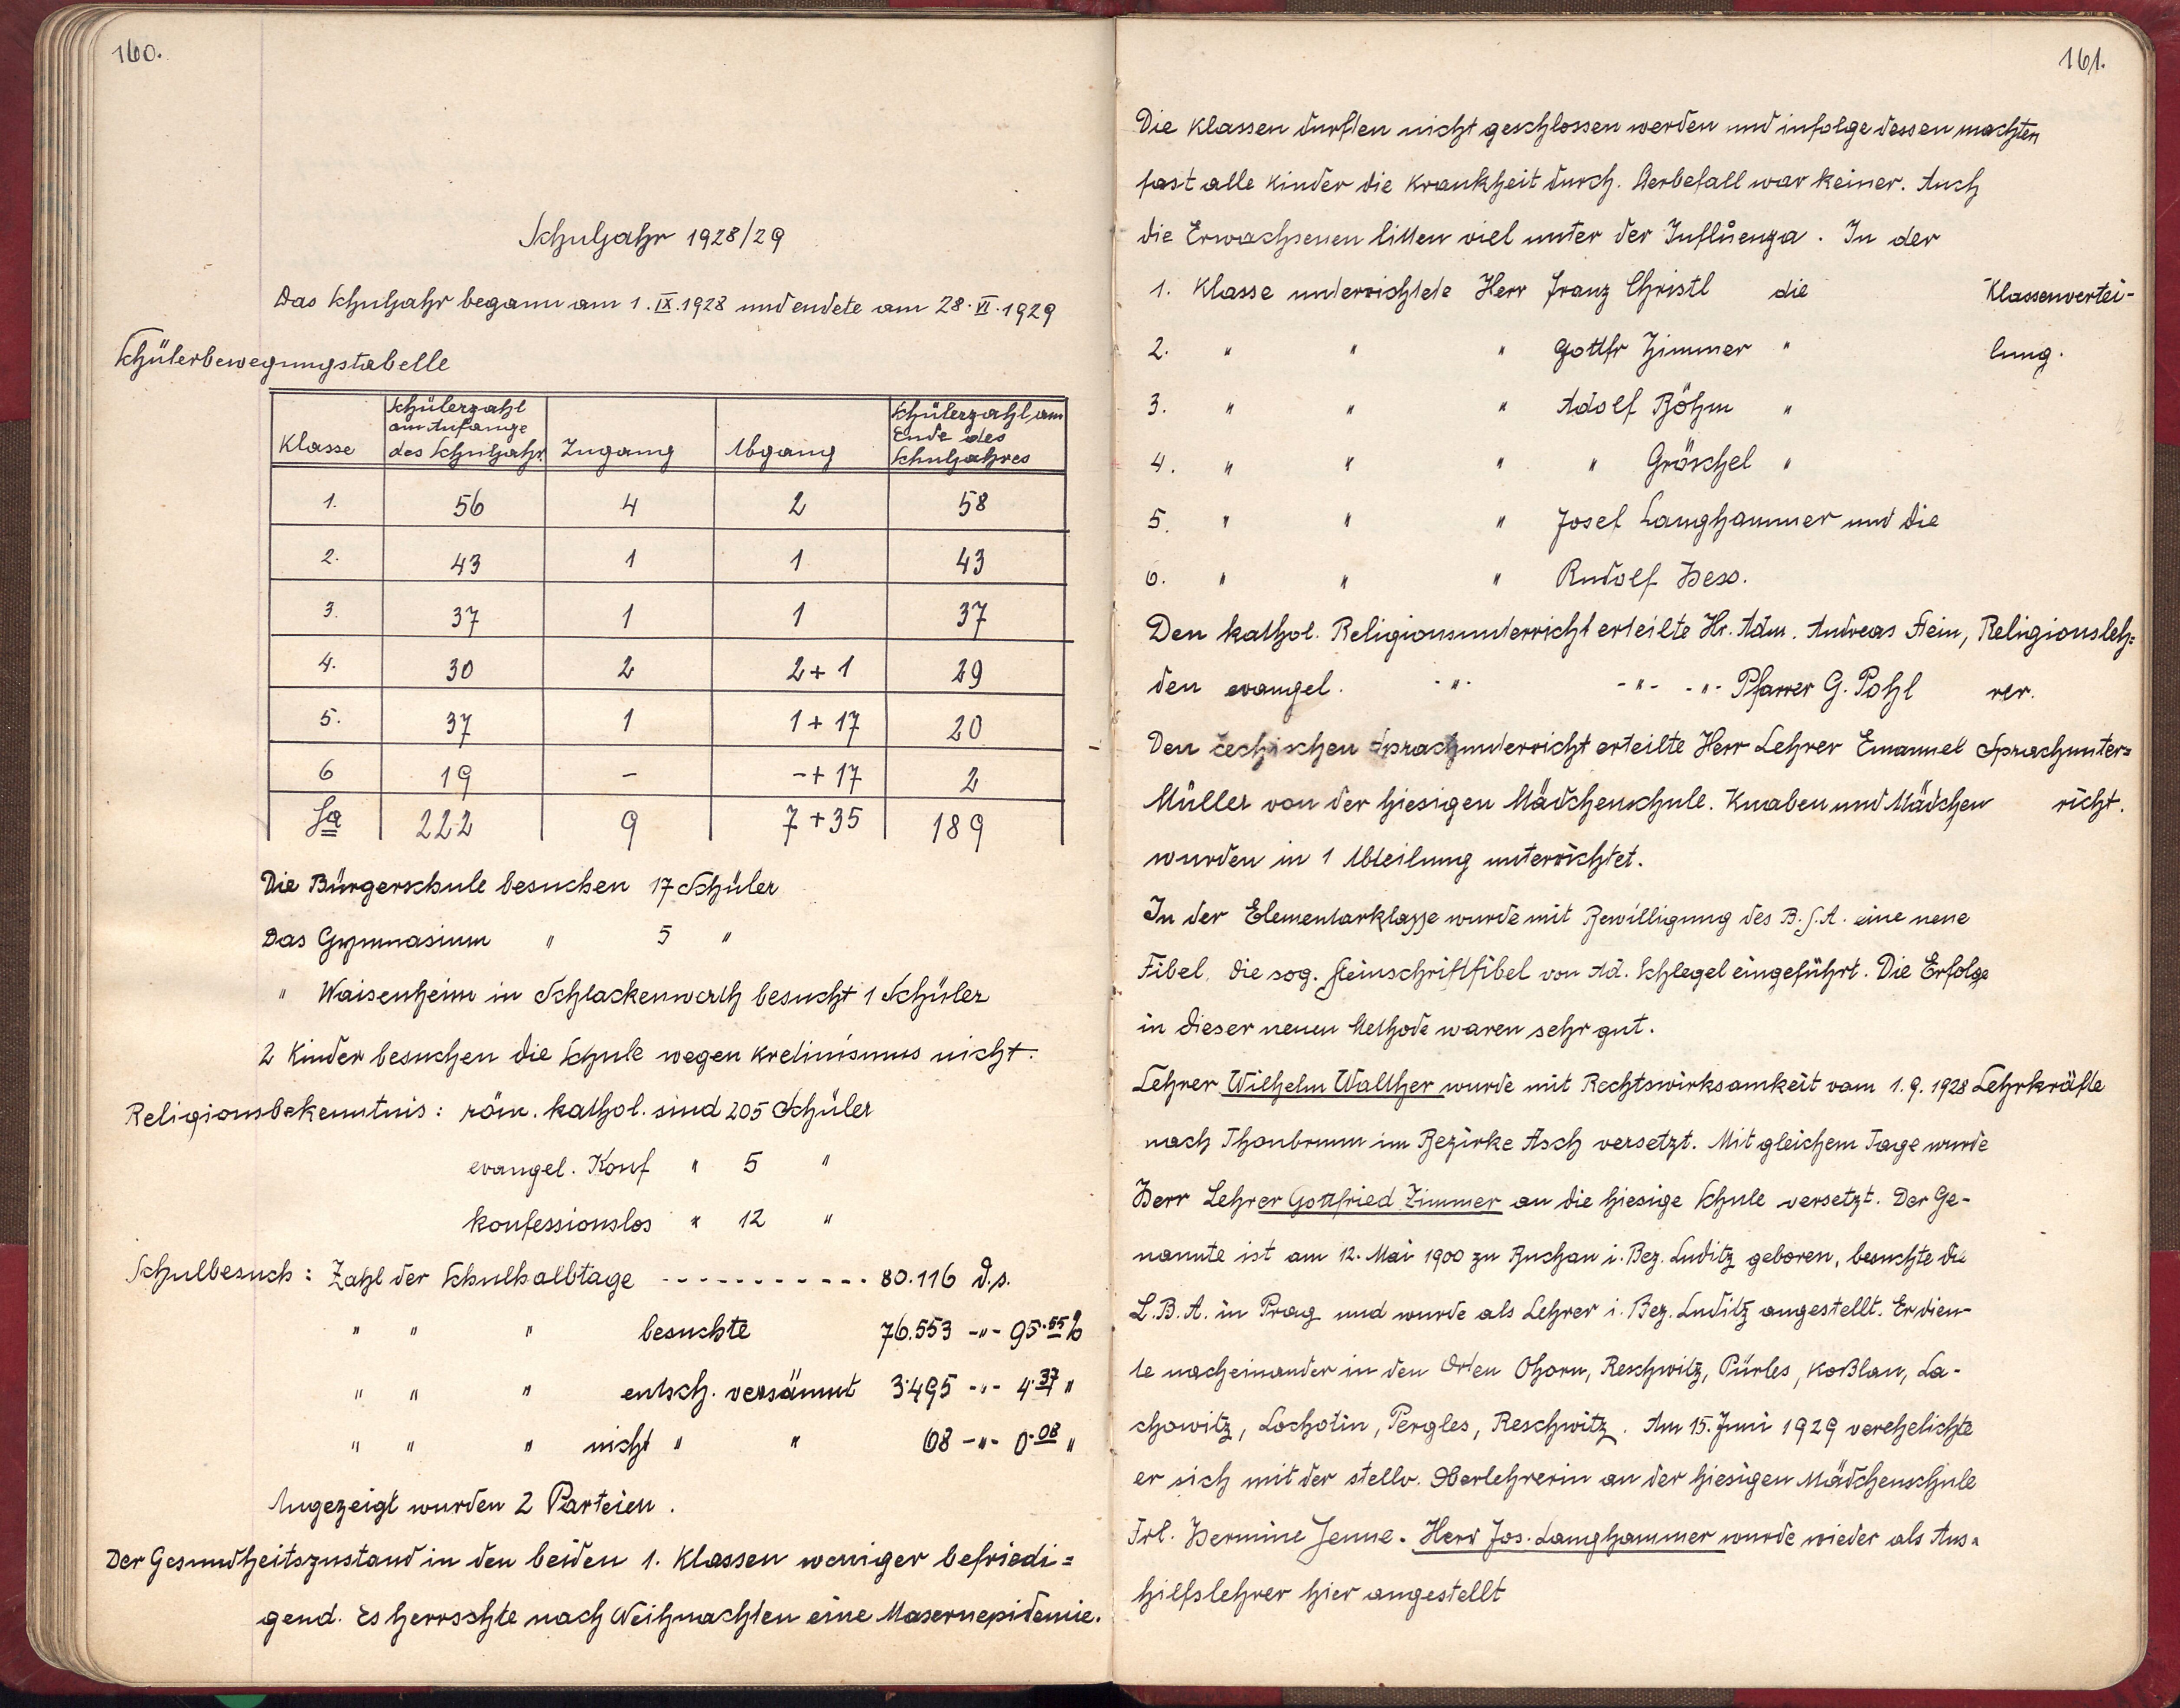 160.
Schuljahr 1928/29
Das Schuljahr begann am 1. IX. 1928 und endete am 28. VI. 1929
Schülerbewegungstabelle
Klasse | Schülerzahl am Anfange des Schuljahr. | Zugang | Abgang | Schülerzahl am Ende des Schuljahres
1. | 56 | 4 | 2 | 58
2. | 43 | 1 | 1 | 43
3. | 37 | 1 | 1 | 37
4. | 30 | 2 | 2 + 1 | 29
5. | 37 | 1 | 1 + 17 | 20
6 | 19 | - | - + 17 | 2
Sa | 222 | 9 | 7 + 35 | 189
Die Bürgerschule besuchen 17 Schüler
Das Gymnasium " 5 "
" Waisenheim in Schlackenwerth besucht 1 Schüler
2 Kinder besuchen die Schule wegen Kretinismus nicht.
Religionsbekenntnis: röm. kathol. sind 205 Schüler
evangel. Konf " 5 "
konfessionslos " 12 "
Schulbesuch: Zahl der Schulhalbtage ----------- 80.116 d.s.
" " " besuchte 76.553 -"- 95.55%
" " " entsch. versäumt 3.495 -"- 4.37 "
" " " nicht " " 68 -"- 0.08 "
Angezeigt wurden 2 Parteien.
Der Gesundheitszustand in den beiden 1. Klassen weniger befriedi=
gend. Es herrschte nach Weihnachten eine Masernepidemie.
161.
Die Klassen durften nicht geschlossen werden und infolge dessen machten
fast alle Kinder die Krankheit durch. Sterbefall war keiner. Auch
die Erwachsenen litten viel unter der Influenza. In der
1. Klasse unterrichtete Herr Franz Christl die Klassenvertei-
2. " " " Gottfr Zimmer " lung.
3. " " " Adolf Böhm "
4. " " " " Gröschel "
5. " " " Josef Langhammer und die
6. " " " Rudolf Hess.
Den kathol. Religionsunterricht erteilte Hr. Adm. Andreas Hein, Religionsleh=
den evangel. -"- -"- -"- Pfarrer G. Pohl rer.
Den čechischen Sprachunterricht erteilte Herr Lehrer Emanuel Sprachunter=
Müller von der hiesigen Mädchenschule. Knaben und Mädchen richt.
wurden in 1 Abteilung unterrichtet.
In der Elementarklasse wurde mit Bewilligung des B.S.A. eine neue
Fibel, die sog. Steinschriftfibel von Ad. Schlegel eingeführt. Die Erfolge
in dieser neuen Methode waren sehr gut.
Lehrer Wilhelm Walther wurde mit Rechtswirksamkeit vom 1.9.1928 Lehrkräfte
nach Thonbrunn im Bezirke Asch versetzt. Mit gleichem Tage wurde
Herr Lehrer Gottfried Zimmer an die hiesige Schule versetzt. Der Ge-
nannte ist am 12. Mai 1900 zu Buchau i. Bez. Luditz geboren, besuchte die
L.B.A. in Prag und wurde als Lehrer i. Bez. Luditz angestellt. Er dien-
te nacheinander in den Orten Ohorn, Reschwitz, Pürles, Koßlau, La-
chowitz, Lochotin, Pergles, Reschwitz. Am 15. Juni 1929 verehelichte
er sich mit der stellv. Oberlehrerin an der hiesigen Mädchenschule
Frl. Hermine Jenne. Herr Jos. Langhammer wurde wieder als Aus=
hilfslehrer hier angestellt